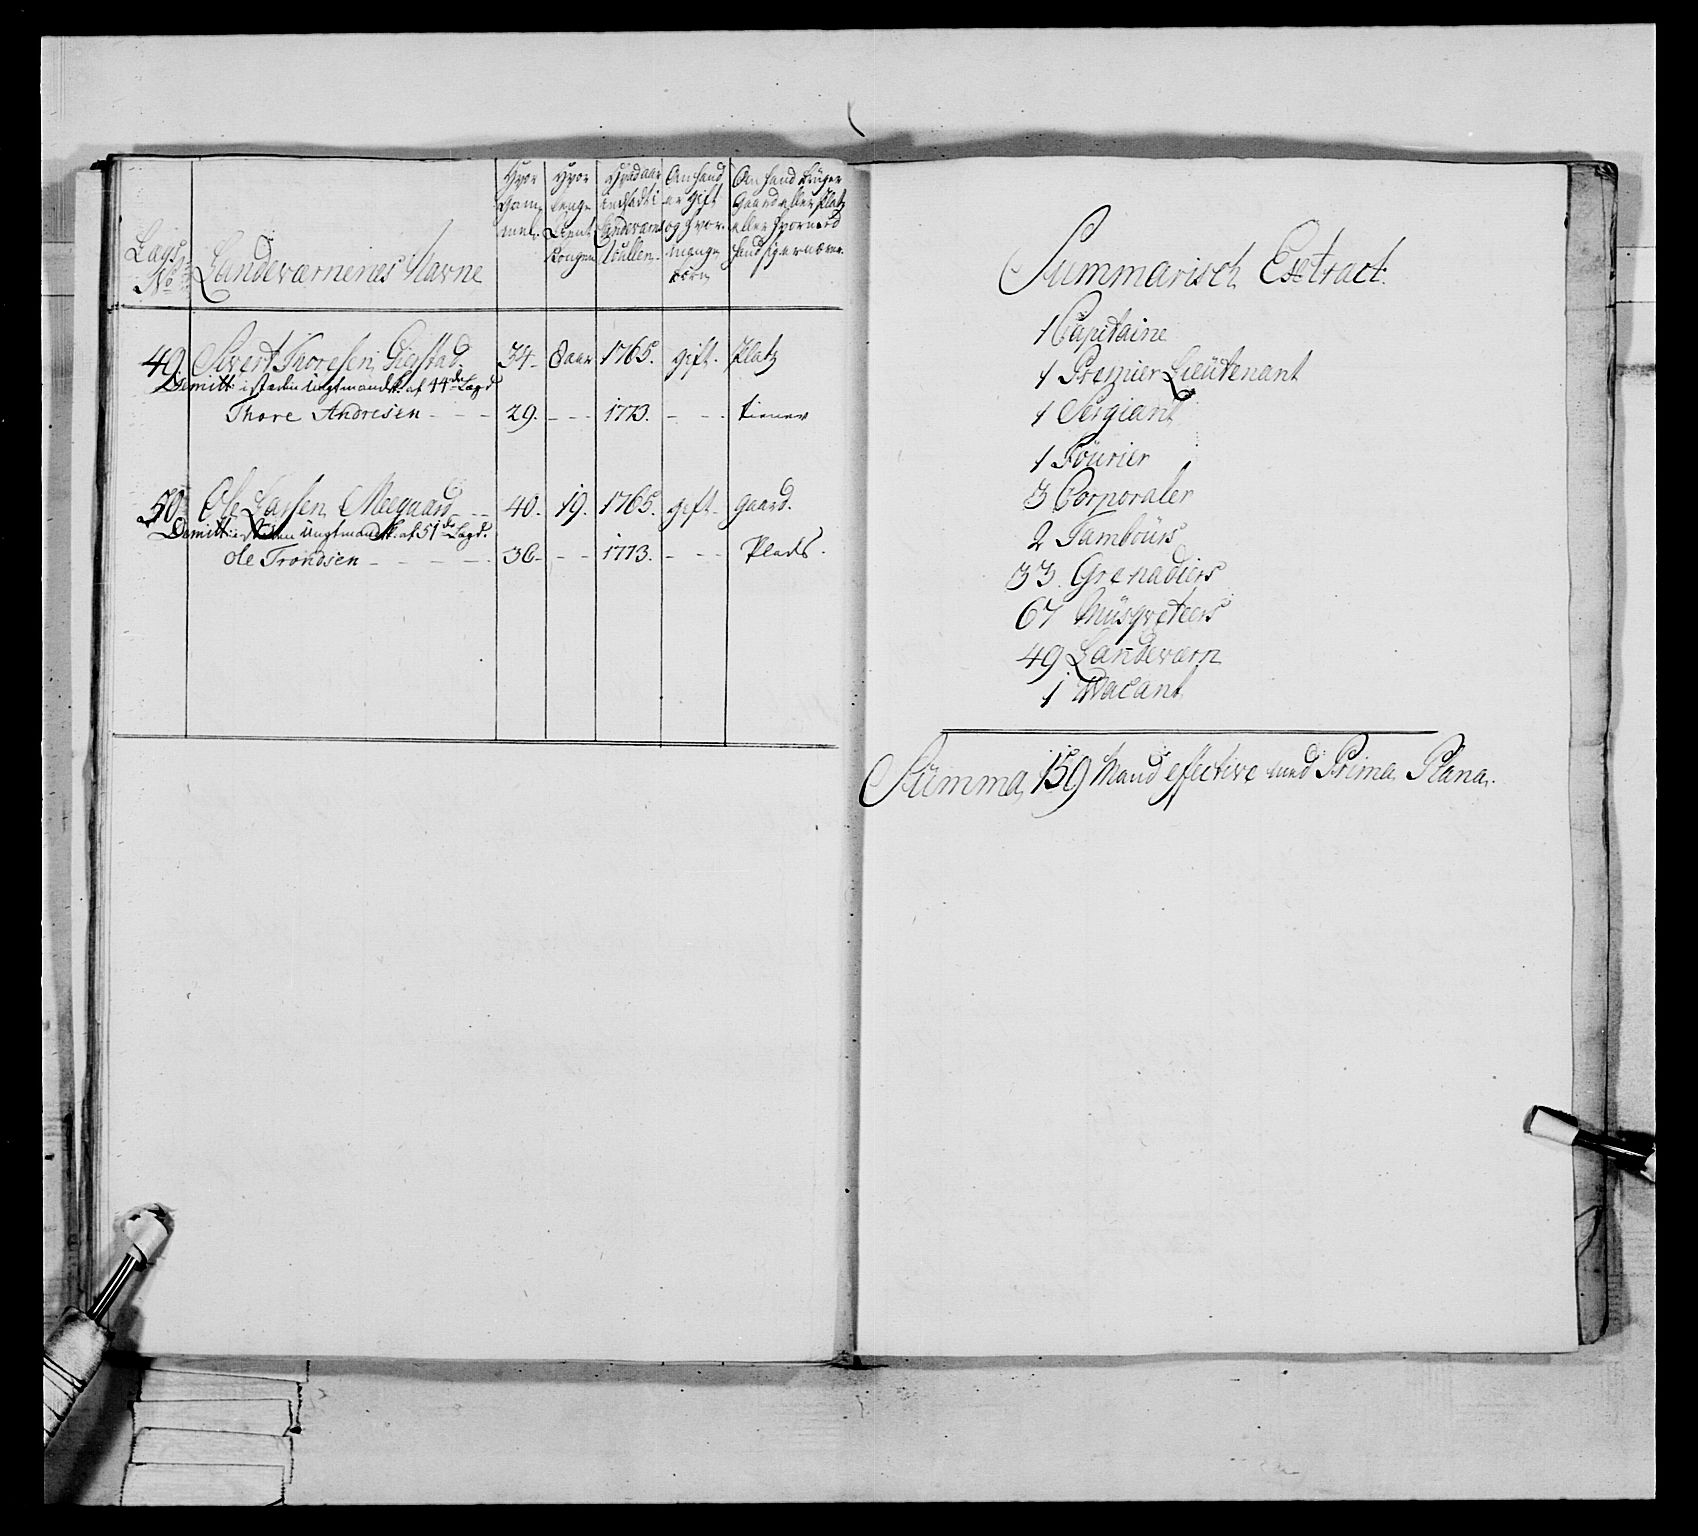 Lags No
Landeværnernes Navne
Hvor Gam- mel.
Hvor lenge tient Kongen
Hvad aar indsadt i Landeværns Roullen.
Om hand er gift og hvor- mange børn
Om hand bruger Gaard eller Platz eller hvormed hand sig ernærer
49. Sivert Thoresen 34. 8 aar 1765. gift. Platz
Demitt: i steden Ungtmandsk: af 44de Lægd
Thore Andresen - - - 29. - - - 1773. - - - tiener
50. Ole Larsen Meegaard - - 40. 19. 1765. gift. gaard.
Demitt: i steden Ungtmandsk: af 51de Lægd.
Ole Trondsen - - - - - 36. - - 1773. - - - Plads.
Summarisch Extract
1 Capitaine
1 Premier Lieütenant
1 Sergiant
1 Fourier
3 Corporaler
2 Tambours
33 Grenadiers
67 Müsqveteers
49 Landeværn
1 Wacant
Summa 159 Mand effective med Prima Plana.